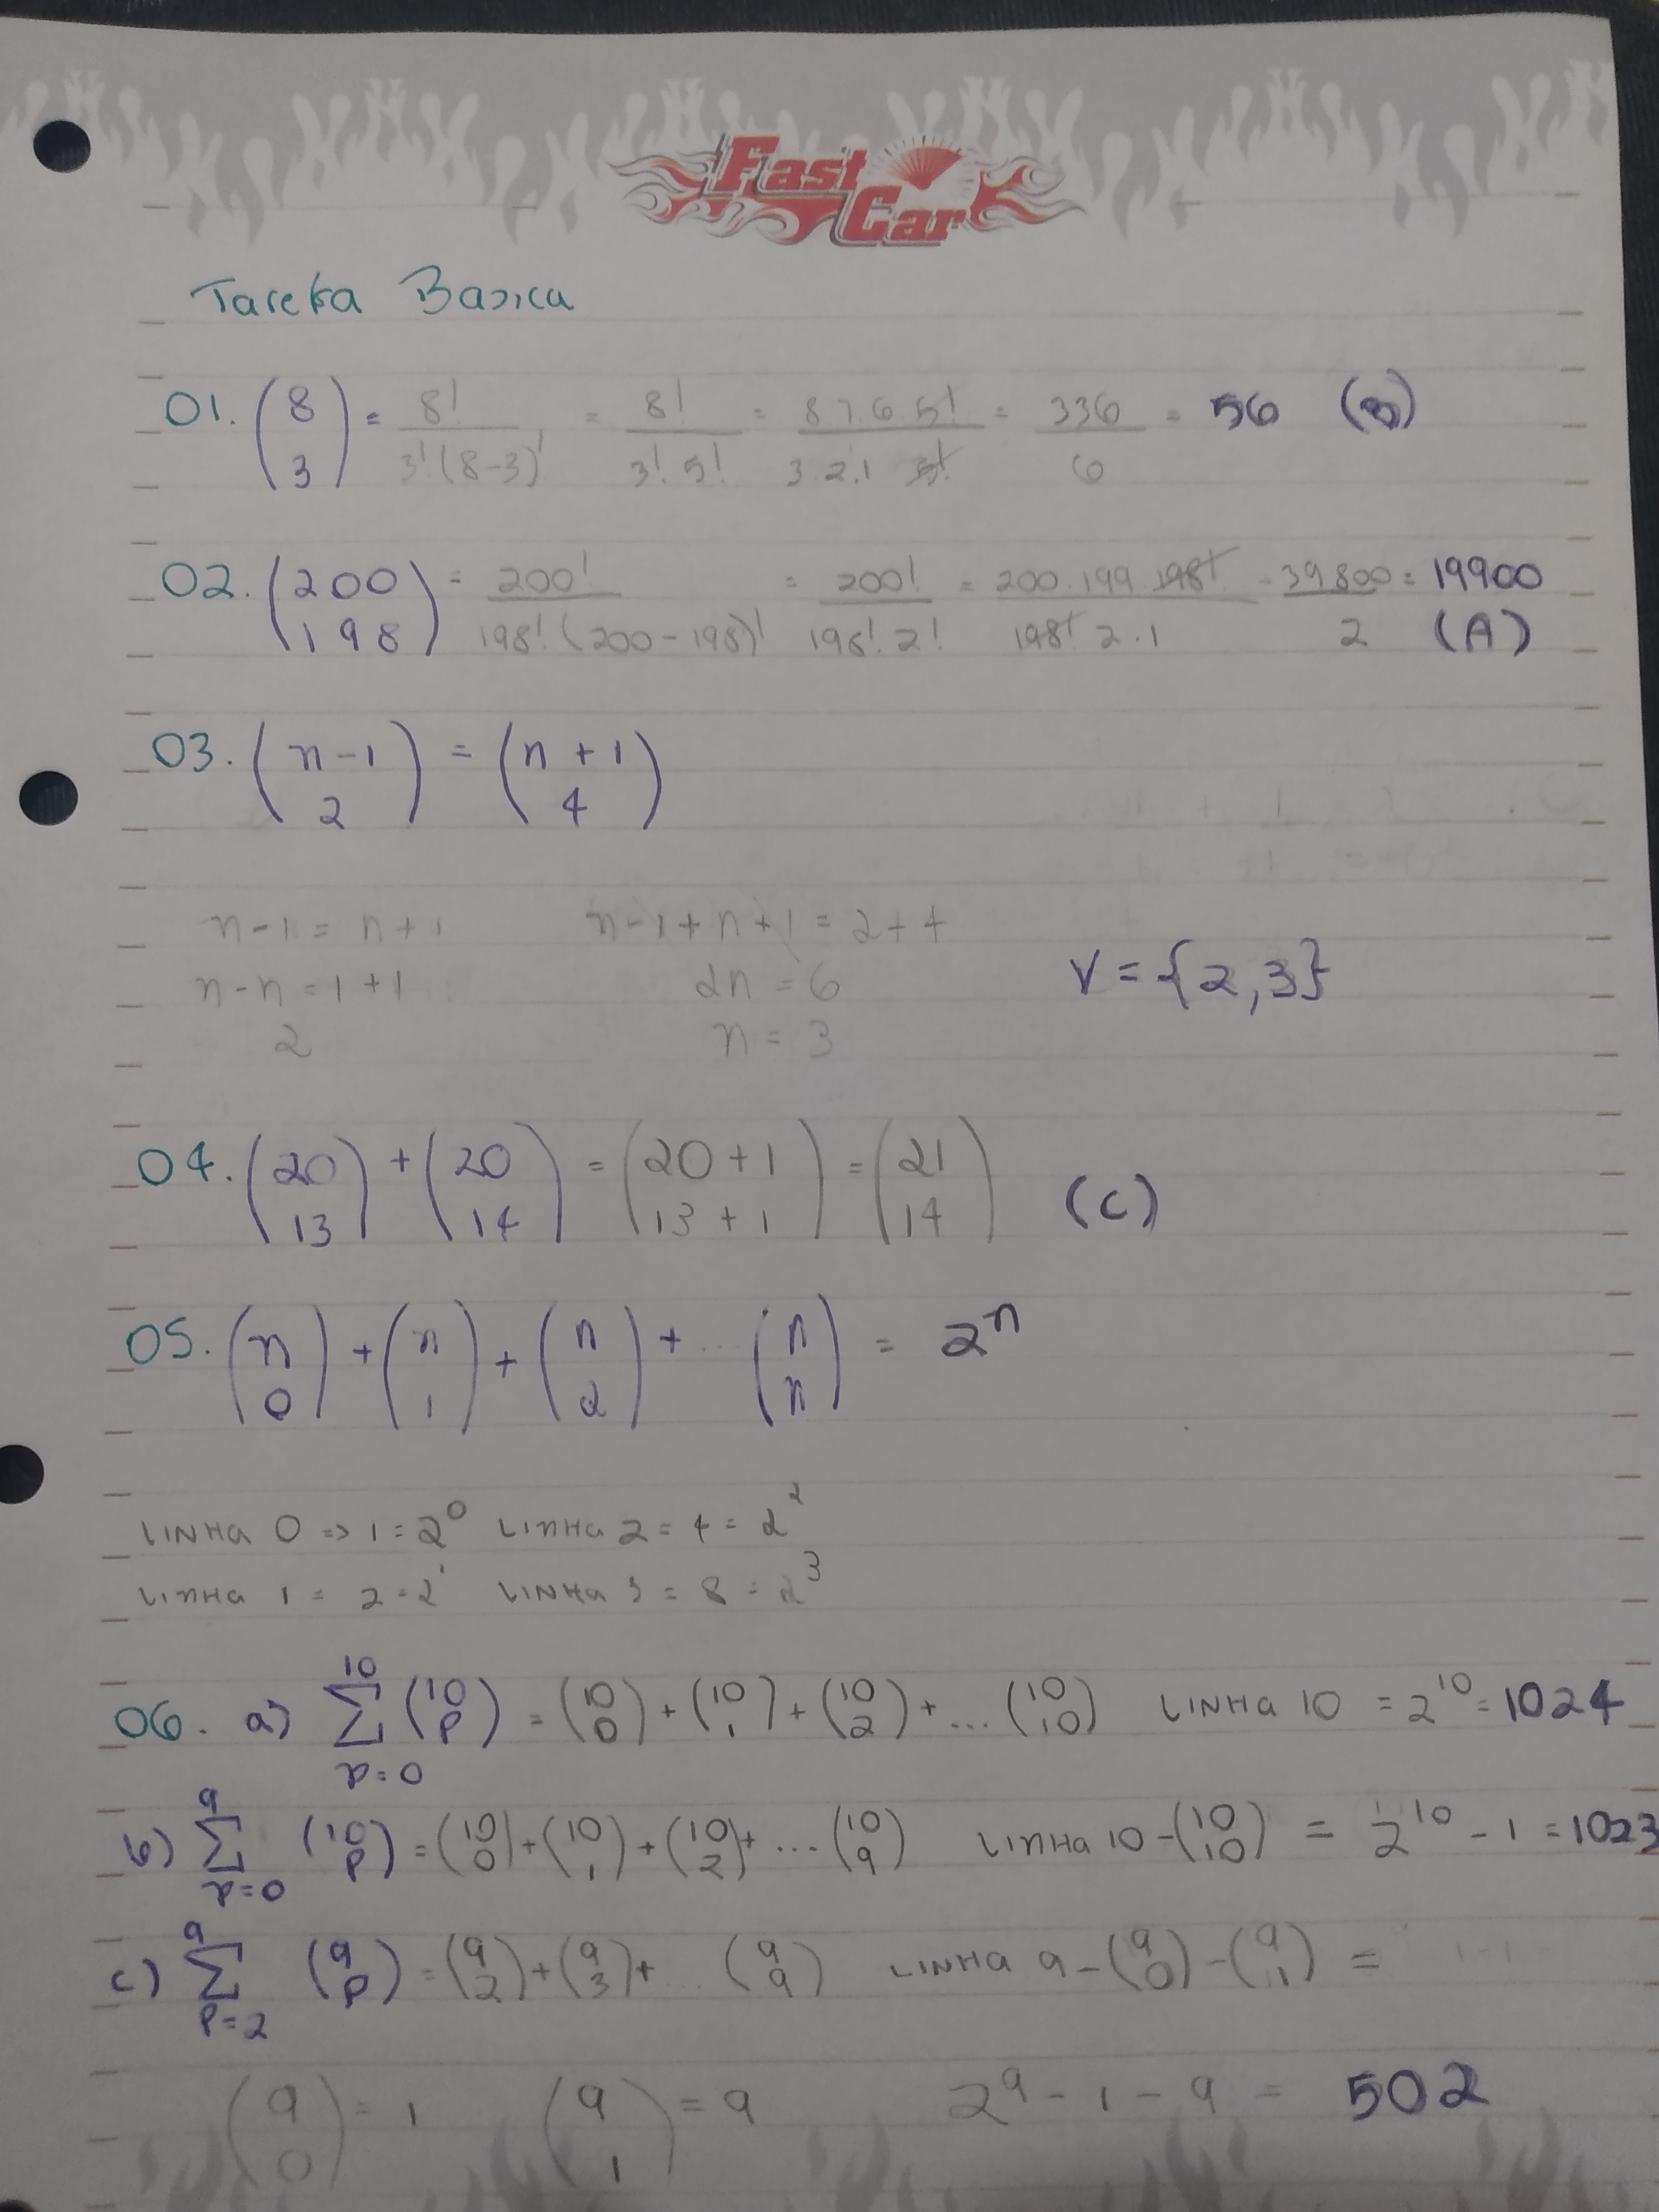 Fast
Car
Tarefa Basica
01. (8 3) = 8!/3!(8-3)! = 8!/3! 5! = 8.7.6 5!/3.2.1 5! = 336/6 = 56 (B)
02. (200 198) = 200!/198!(200-198)! = 200!/198! 2! = 200.199.198!/198! 2.1 - 39800/2 = 19900 (A)
03. (n-1 2) = (n+1 4)
n-1 = n+1 n-1+n+1 = 2+4
n-n = 1+1 2n = 6 V = {2,3}
2 n = 3
04. (20 13) + (20 14) = (20+1 13+1) = (21 14) (C)
05. (n 0) + (n 1) + (n 2) + ... (n n) = 2^n
LINHA 0 => 1 = 2^0 LINHA 2 = 4 = 2^2
LINHA 1 = 2 = 2^1 LINHA 3 = 8 = 2^3
06. a) 10 Σ p=0 (10 p) = (10 0) + (10 1) + (10 2) + ... (10 10) LINHA 10 = 2^10 = 1024
b) 9 Σ p=0 (10 p) = (10 0) + (10 1) + (10 2) + ... (10 9) LINHA 10 - (10 10) = 2^10 - 1 = 1023
c) 9 Σ p=2 (9 p) = (9 2) + (9 3) + ... (9 9) LINHA 9 - (9 0) - (9 1) =
(9 0) = 1 (9 1) = 9 2^9 - 1 - 9 = 502